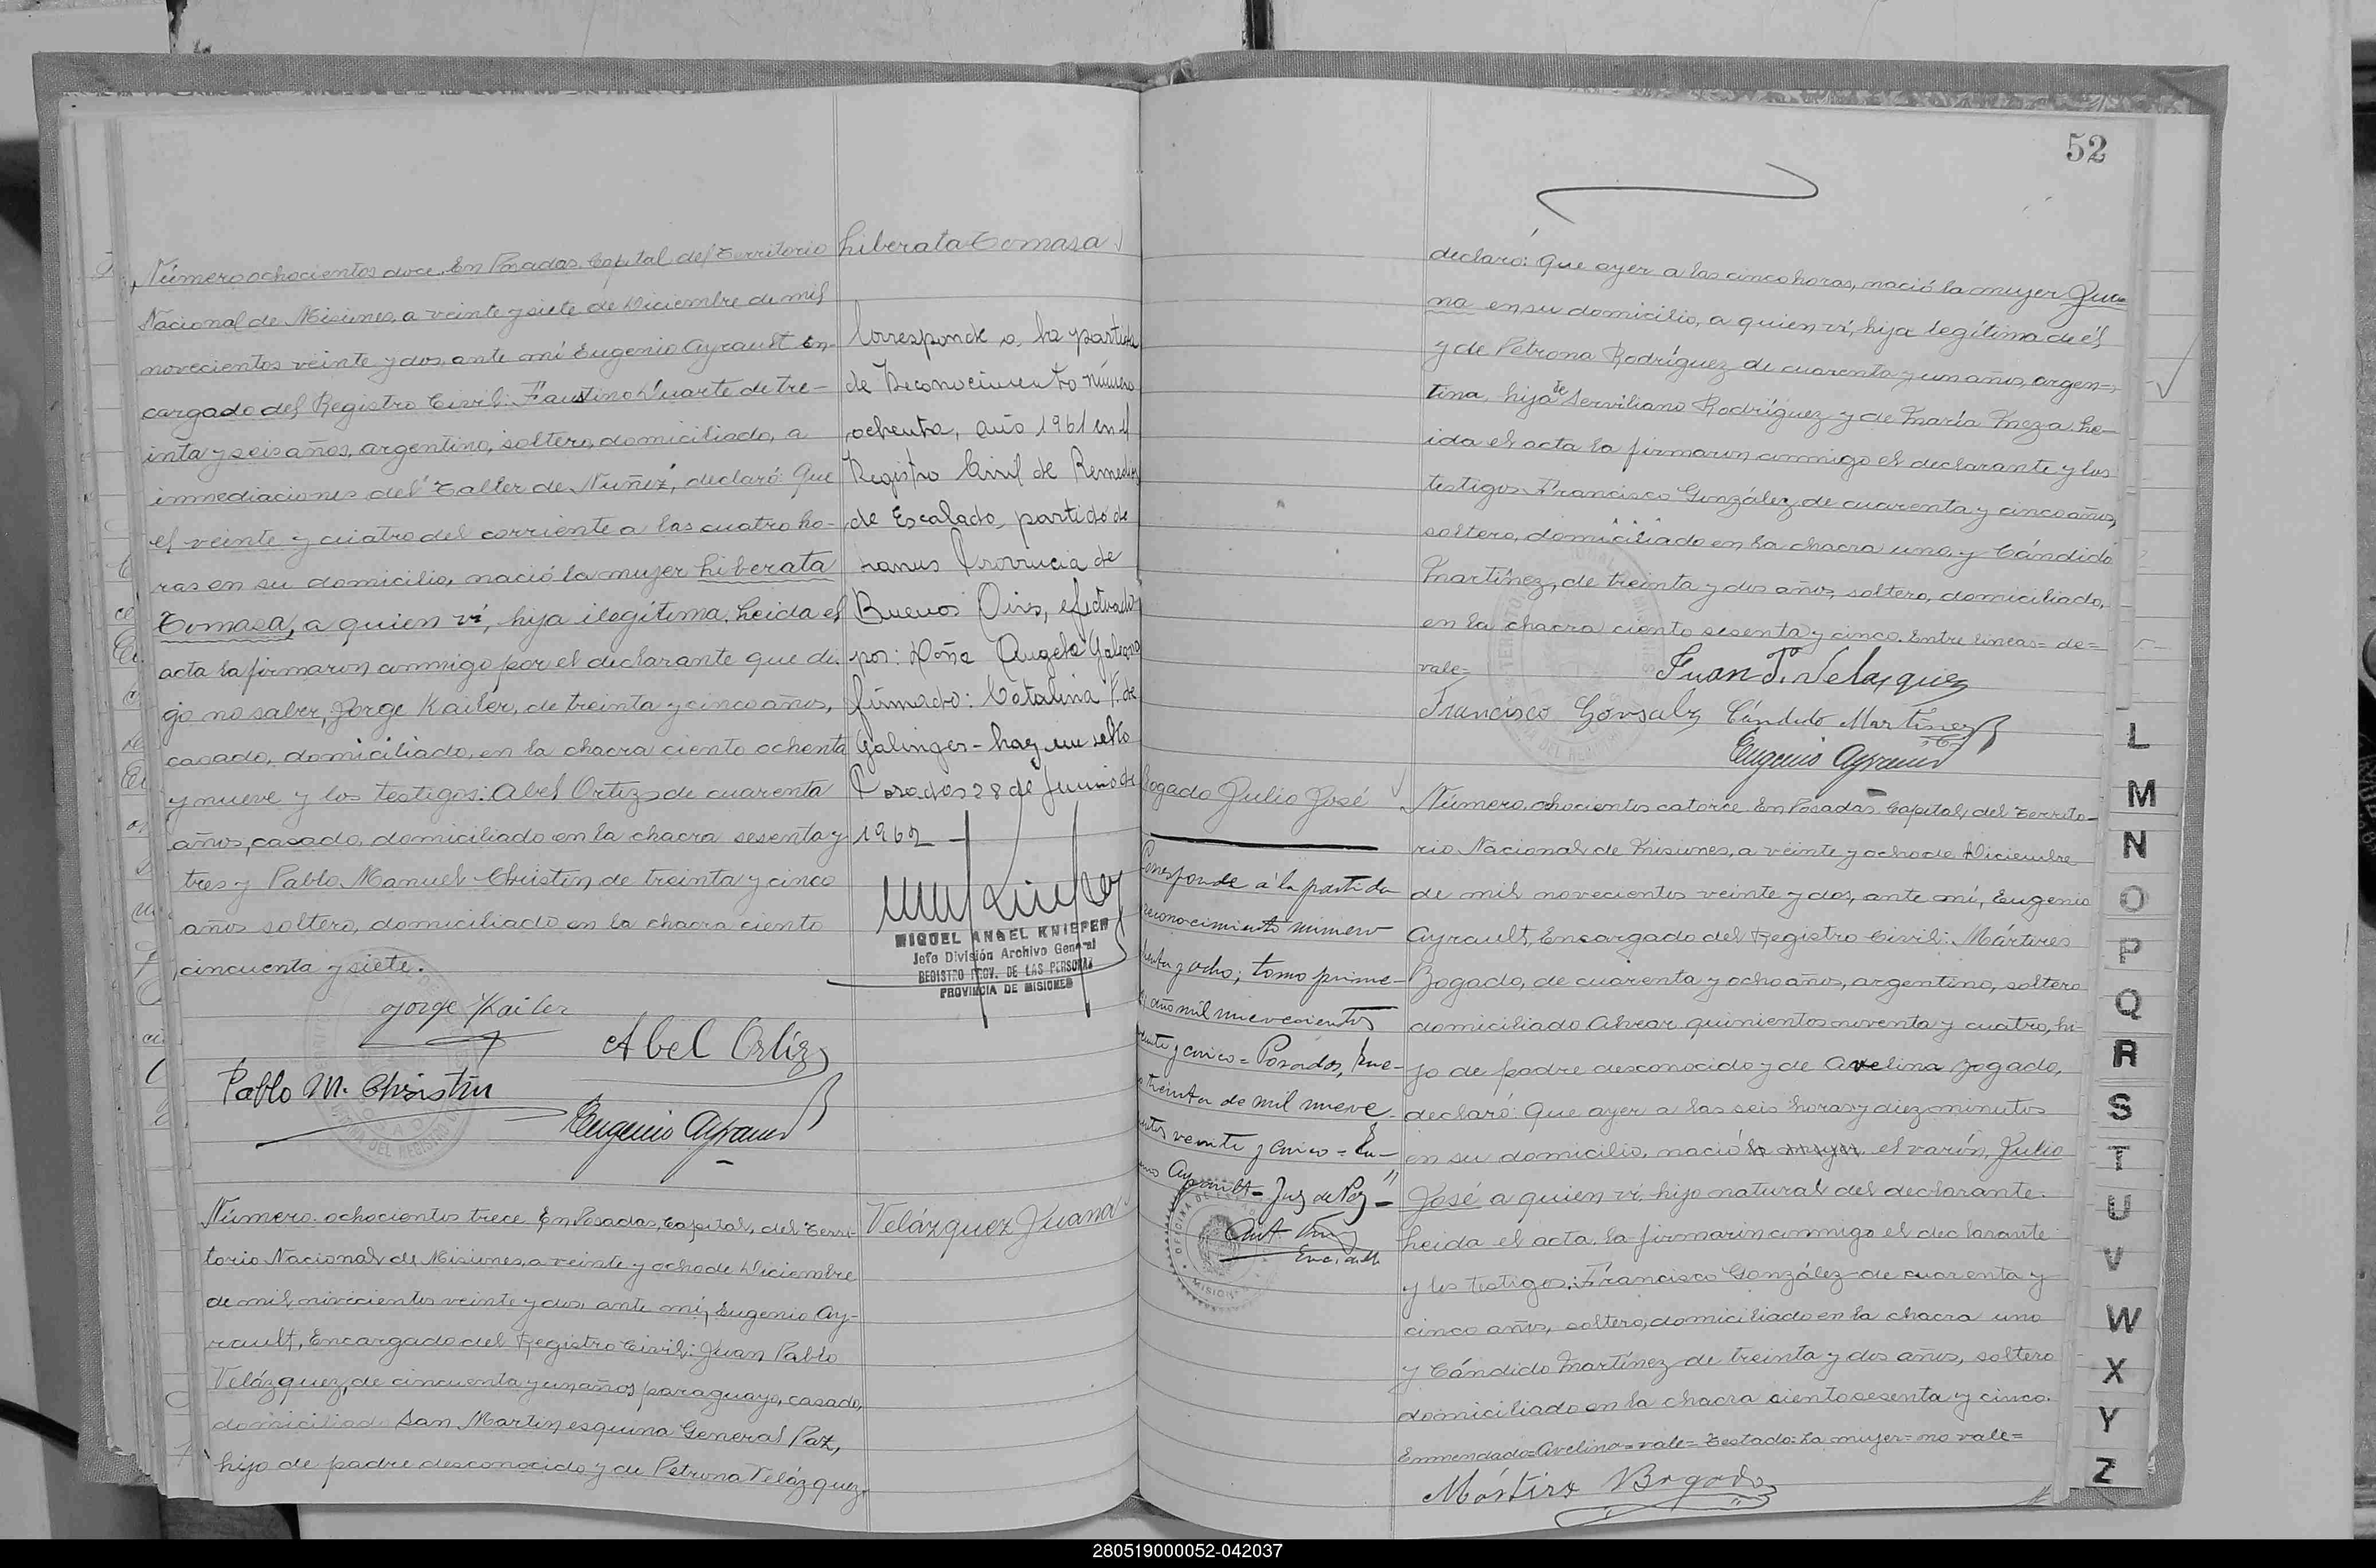 Número ochocientos doce. En Posadas Capital del Territorio
Nacional de Misiones, a veinte y siete de Diciembre de mil
novecientos veinte y dos, ante mi Eugenio Ayrault En-
cargado del Registro Civil: Faustino Duarte de tre-
inta y seis años, argentino, soltero, domiciliado, a
inmediaciones del "Taller de Nuñez", declaró: Que
el veinte y cuatro del corriente a las cuatro ho-
ras en su domicilio, nació la mujer Liberata
Tomasa, a quien ví, hija ilegítima. Leida el
acta la firmaron conmigo por el declarante que di-
jo no saber, Jorge Kailer, de treinta y cinco años,
casado, domiciliado, en la chacra ciento ochenta
y nueve y los testigos: Abel Ortiz de cuarenta
años, casado, domiciliado en la chacra sesenta y
tres y Pablo Manuel Christin de treinta y cinco
años soltero, domiciliado en la chacra ciento
cincuenta y siete.
Jorge Kailer
Abel Ortiz
Pablo M. Christin
Eugenio Ayrault
Liberata Tomasa
Corresponde a la partida
de Reconocimiento número
ochenta, año 1961 en el
Registro Civil de Remedios
de Escalada, partido de
Lanus Provincia de
Buenos Aires, efectuado
por: Doña Angela Galeano
firmado: Catalina F. de
Galinger - hay un sello
Posadas 28 de Junio de
1962
MIGUEL ANGEL KNIEPER
Jefe División Archivo General
REGISTRO PROV. DE LAS PERSONAS
PROVINCIA DE MISIONES
Número ochocientos trece En Posadas, Capital, del Terri-
torio Nacional de Misiones, a veinte y ocho de Diciembre
de mil novecientos veinte y dos, ante mi, Eugenio Ay-
rault, Encargado del Registro Civil: Juan Pablo
Velázquez, de cincuenta y un años, paraguayo, casado,
domiciliado San Martin esquina General Paz,
hijo de padre desconocido y de Petrona Velázquez,
Velázquez Juana
52
declaró: Que ayer a las cinco horas, nació la mujer Jua-
na en su domicilio, a quien ví, hija legítima de él
y de Petrona Rodríguez de cuarenta y un años, argen=
tina, hija de Serviliano Rodríguez y de María Meza. Le-
ida el acta la firmaron conmigo el declarante y los
testigos Francisco González, de cuarenta y cinco años,
soltero, domiciliado en la chacra uno, y Cándido
Martínez, de treinta y dos años, soltero, domiciliado,
en la chacra ciento sesenta y cinco. Entre lineas= de=
vale=
Juan P. Velazquez
Francisco Gonsalz Cándido Martinez
Eugenio Ayrault
Bogado Julio José
Corresponde á la partida
reconocimiento número
y ocho; tomo prime-
año mil nuevecientos
y cinco = Posadas,
treinta de mil nueve-
veinte y cinco =
Ayrault - Juz de Paz -
Número ochocientos catorce En Posadas, Capital, del Territo-
rio Nacional de Misiones, a veinte y ocho de Diciembre
de mil novecientos veinte y dos, ante mi, Eugenio
Ayrault, Encargado del Registro Civil: Mártires
Bogado, de cuarenta y ocho años, argentino, soltero
domiciliado Alvear quinientos noventa y cuatro, hi-
jo de padre desconocido y de Avelina Bogado,
declaró: Que ayer a las seis horas y diez minutos
en su domicilio, nació la mujer el varón, Julio
José a quien ví, hijo natural del declarante.
Leida el acta, la firmaron conmigo el declarante
y los testigos: Francisco González de cuarenta y
cinco años, soltero, domiciliado en la chacra uno
y Cándido Martínez de treinta y dos años, soltero
domiciliado en la chacra ciento sesenta y cinco.
Enmendado=Avelina=vale=Testado: la mujer= no vale=
Mártirez Bogado
L
M
N
O
P
Q
R
S
T
U
V
W
X
Y
Z
280519000052-042037